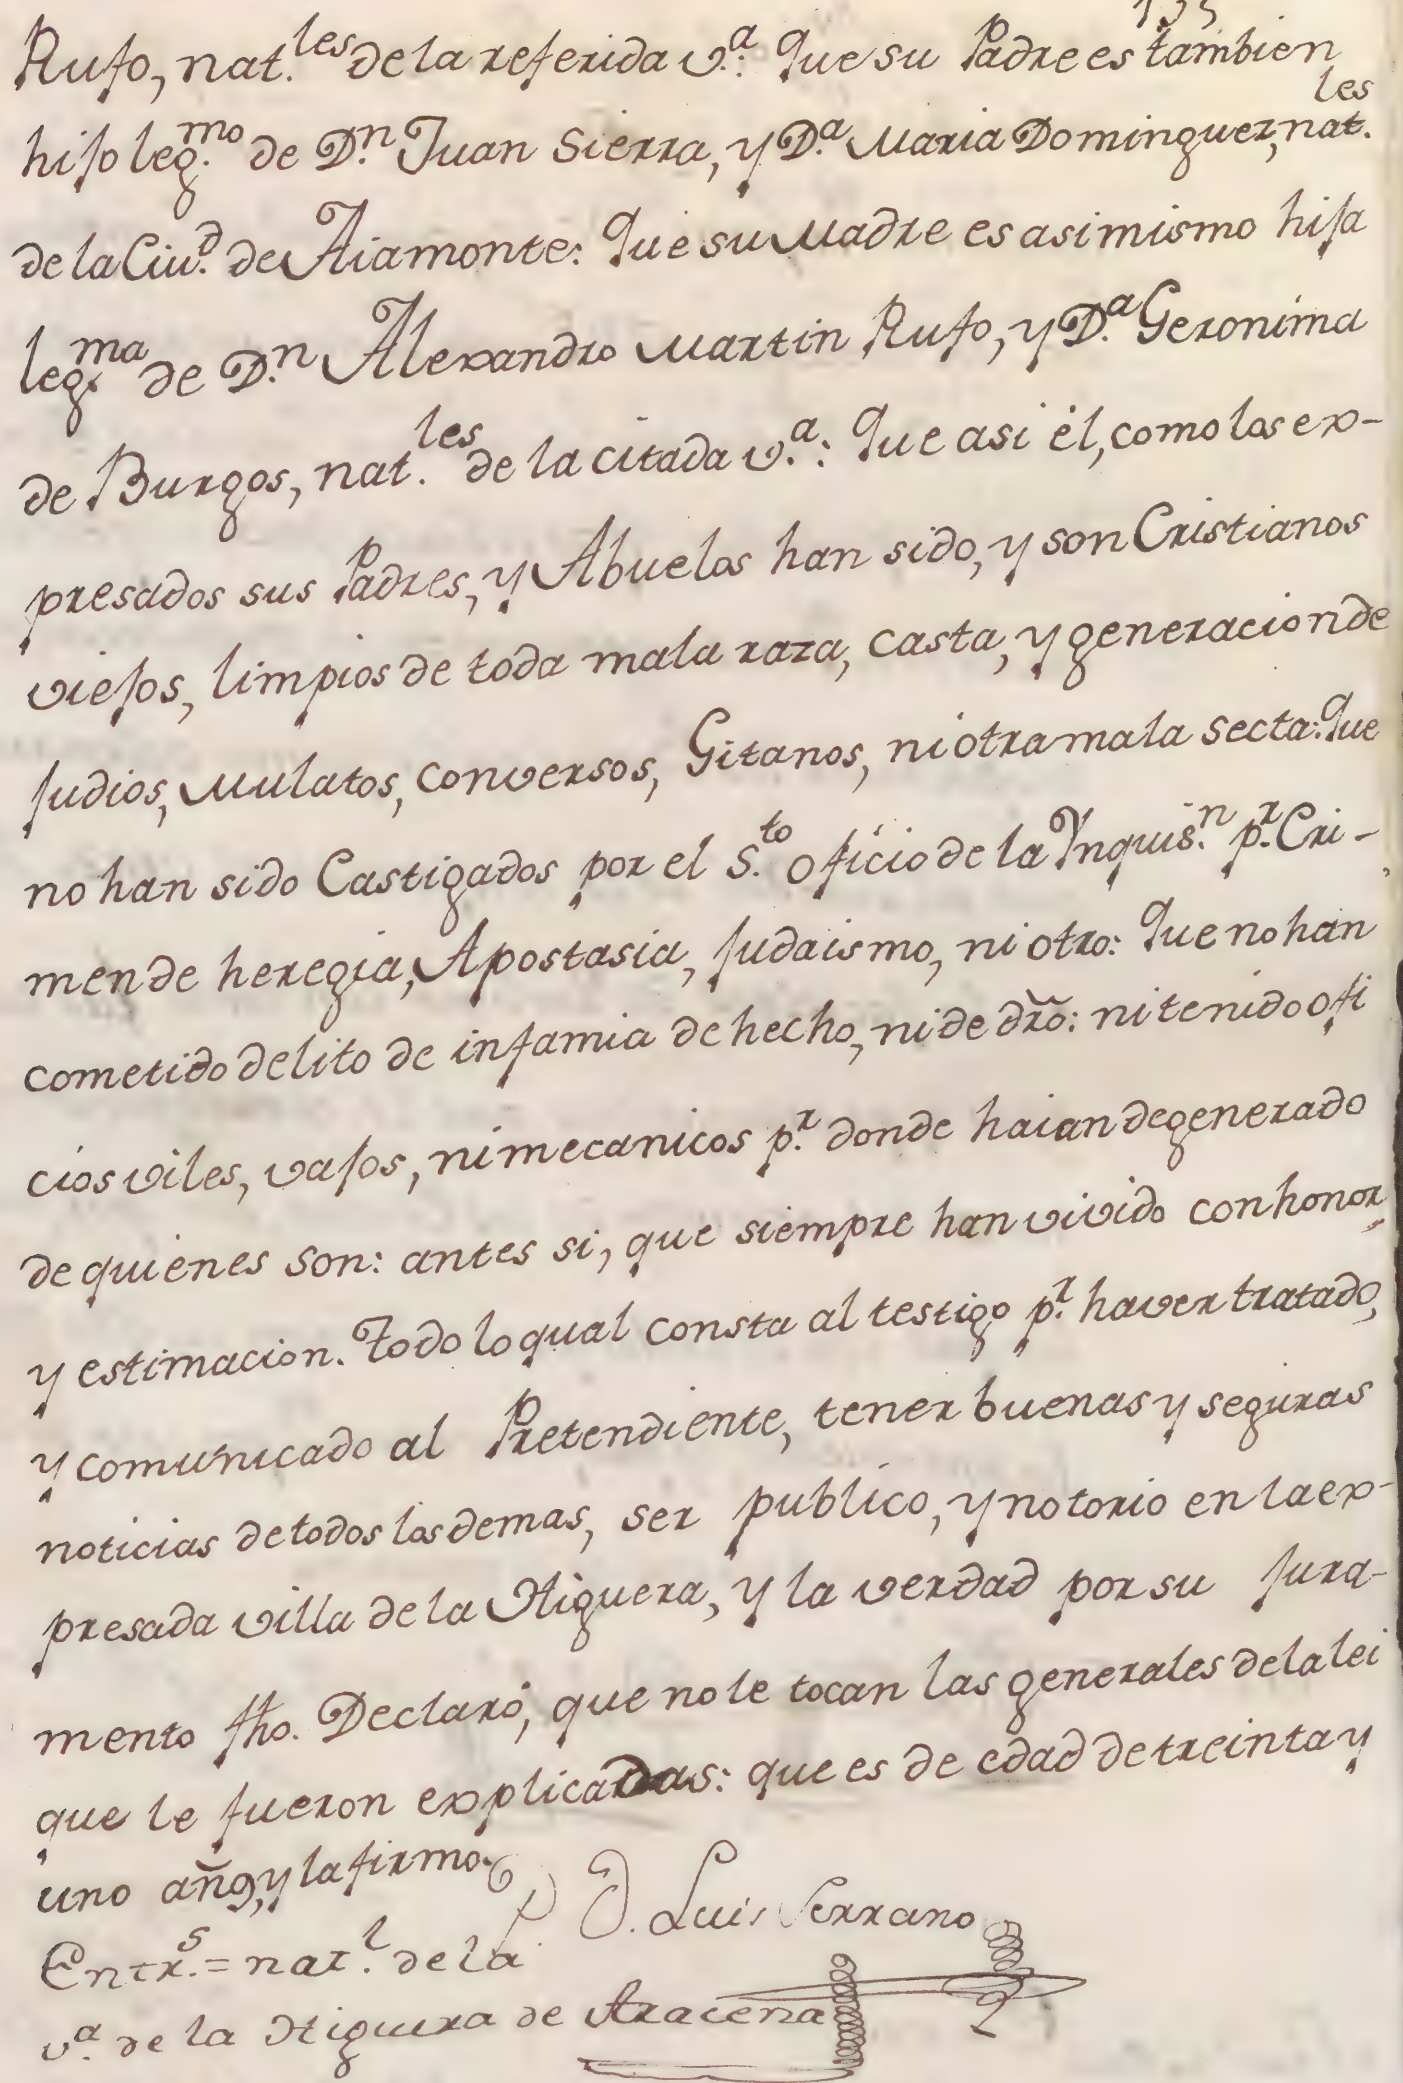 Rufo, nat.les de la referida v.a: Que su Padre es tambien
hijo leg.mo de D.n Juan Sierra, y D.a Maria Dominguez, nat.les
de la Ciu.d de Aiamonte: Que su Madre es asimismo hija
leg.ma de D.n Alexandro Martin Rufo, y D.a Geronima
de Burgos, nat.les de la citada v.a: Que asi él, como los ex-
presados sus Padres, y Abuelos han sido, y son Cristianos
viejos, limpios de toda mala raza, casta, y generacion de
judios, Mulatos, conversos, Gitanos, ni otra mala secta: Que
no han sido Castigados por el S.to oficio de la Ynquis.n p.r Cri-
men de heregia, Apostasia, judaismo, ni otro: Que no han
cometido delito de infamia de hecho, ni de dr̃o: ni tenido ofi
cios viles, vajos, ni mecanicos p.r donde haian degenerado
de quienes son: antes si, que siempre han vivido con honor,
y estimacion. Todo lo qual consta al testigo p.r haver tratado,
y comunicado al Pretendiente, tener buenas y seguras
noticias de todos los demas, ser publico, y notorio en la ex-
presada villa de la Higuera, y la verdad por su jura-
mento fho. Declaró, que no le tocan las generales de la lei
que le fueron explicadas: que es de edad de treinta y
uno años, y la firmo.
D. Luis Serrano
Entr.s = nat.l de la
v.a de la Higuera de Aracena